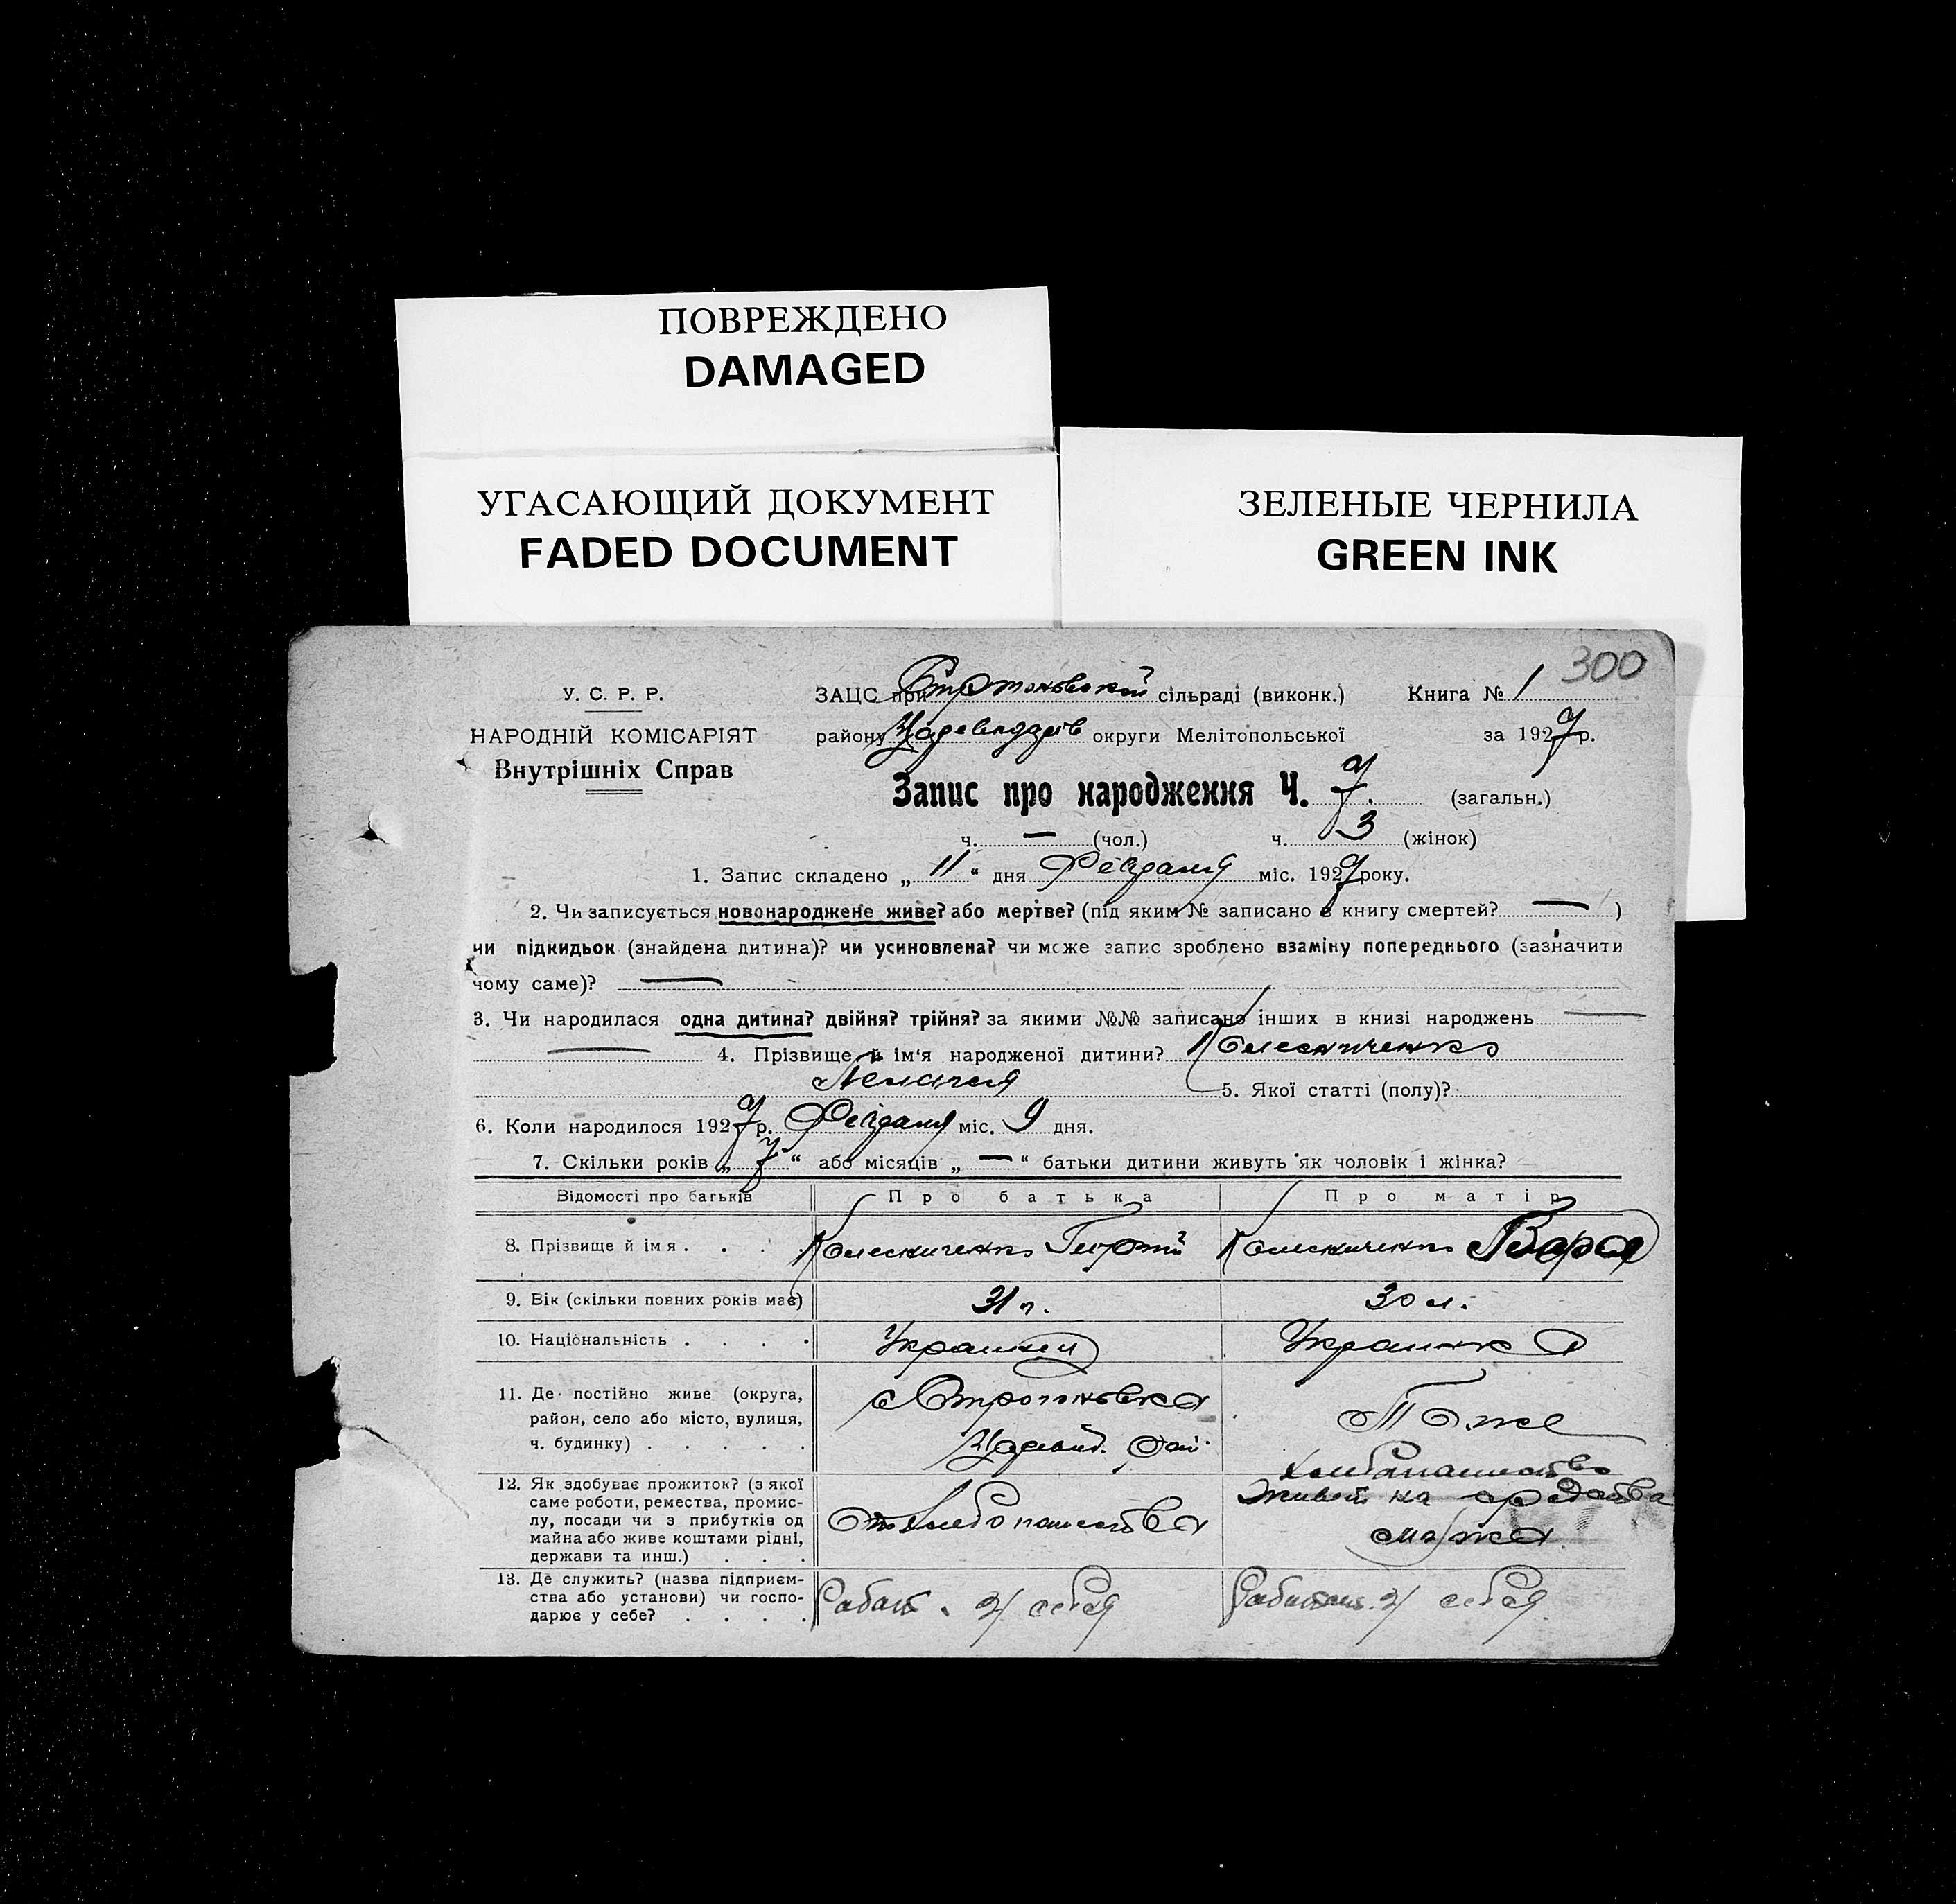 ПОВРЕЖДЕНО
DAMAGED
УГАСАЮЩИЙ ДОКУМЕНТ
FADED DOCUMENT
ЗЕЛЕНЫЕ ЧЕРНИЛА
GREEN INK
300
У. С. Р. Р.
НАРОДНІЙ КОМІСАРІЯТ
Внутрішніх Справ
ЗАЦС при сільраді (виконк.) Книга № 1
району округи Мелітопольської за 1927 р.
Запис про народження Ч. 7. (загальн.)
ч. — (чол.) ч. 3 (жінок)
1. Запис складено „ 11 “ дня міс. 1927 року.
2. Чи записується новонароджене живе? або мертве? (під яким № записано в книгу смертей? — )
чи підкидьок (знайдена дитина)? чи усиновлена? чи може запис зроблено взаміну попереднього (зазначити
чому саме)? —
3. Чи народилася одна дитина? двійня? трійня? за якими №№ записано інших в книзі народжень —
— 4. Прізвище й ім'я народженої дитини? Колесниченко
5. Якої статті (полу)?
6. Коли народилося 1927 р. міс. 9 дня.
7. Скільки років „ 7 “ або місяців „ — “ батьки дитини живуть як чоловік і жінка?
Відомості про батьків Про батька Про матір
8. Прізвище й імя . . . . Колесниченко Колесниченко Варя
9. Вік (скільки повних років має) 31 л. 30 л.
10. Національність . . . . Украинец Украинка
11. Де постійно живе (округа,
район, село або місто, вулиця,
ч. будинку) . . . . .
То же
12. Як здобуває прожиток? (з якої
саме роботи, ремества, промис-
лу, посади чи з прибутків од
майна або живе коштами рідні,
держави та инш.) . . .
от хлебопашества
хлебопашество
живет на средства
мужа
13. Де служить? (назва підприєм-
ства або установи) чи госпо-
дарює у себе? . . . .
Работ. у себя
у себя